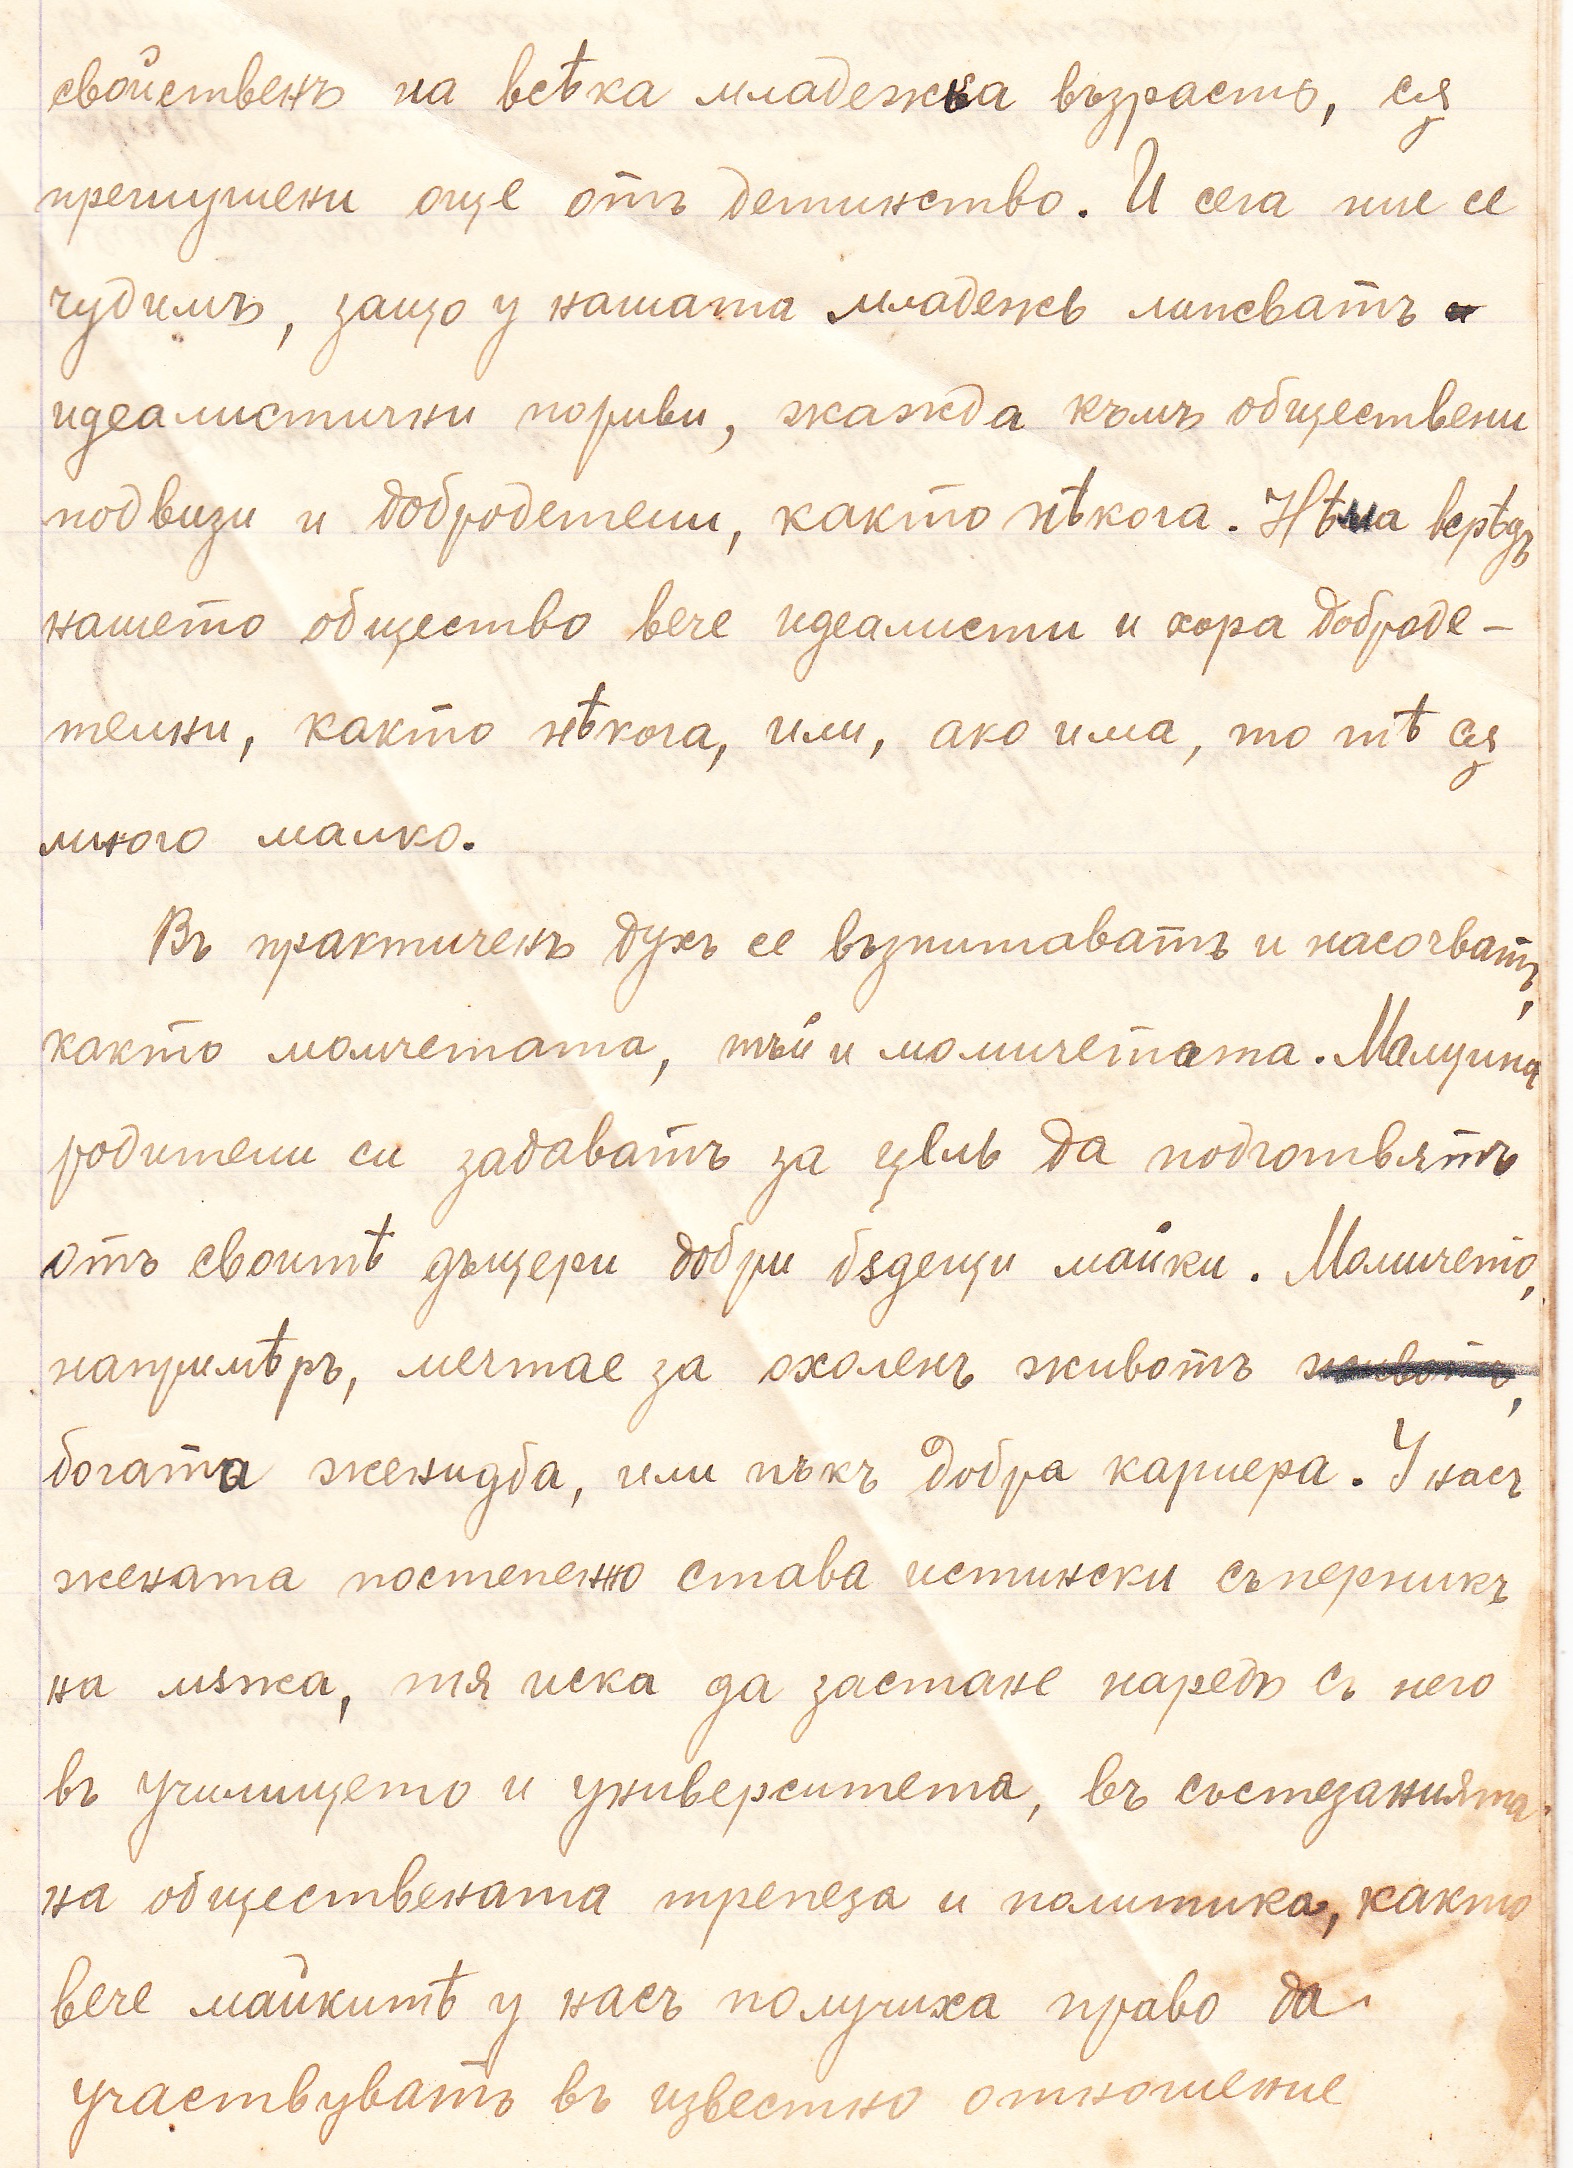 свойственъ на всѣка младежка възрасть, сѫ
премушени още отъ детинство. И сега ние се
чудимъ, защо у нашата младежь липсватъ
идеалистични пориви, жажда къмъ обществени
подвизи и добродетели, както нѣкога. Нѣма всрѣдъ
нашето общество вече идеалисти и хора доброде-
телни, както нѣкога, или, ако има, то тѣ сѫ
много малко.
Въ практиченъ духъ се възпитаватъ и насочватъ,
както момчетата, тъй и момичетата. Малцина
родители си задаватъ за цель да подготвятъ
отъ своитѣ дъщери добри бѫдещи майки. Момичето,
напримѣръ, мечтае за охоленъ животъ ~~животъ~~,
богата женидба, или пъкъ добра кариера. У насъ
жената постепенно става истински съперникъ
на мѫжа, тя иска да застане наредъ съ него
въ училището и университета, въ състезанията
на обществената трепеза и политика, както
вече майкитѣ у насъ получиха право да
участвуватъ въ известно отношение